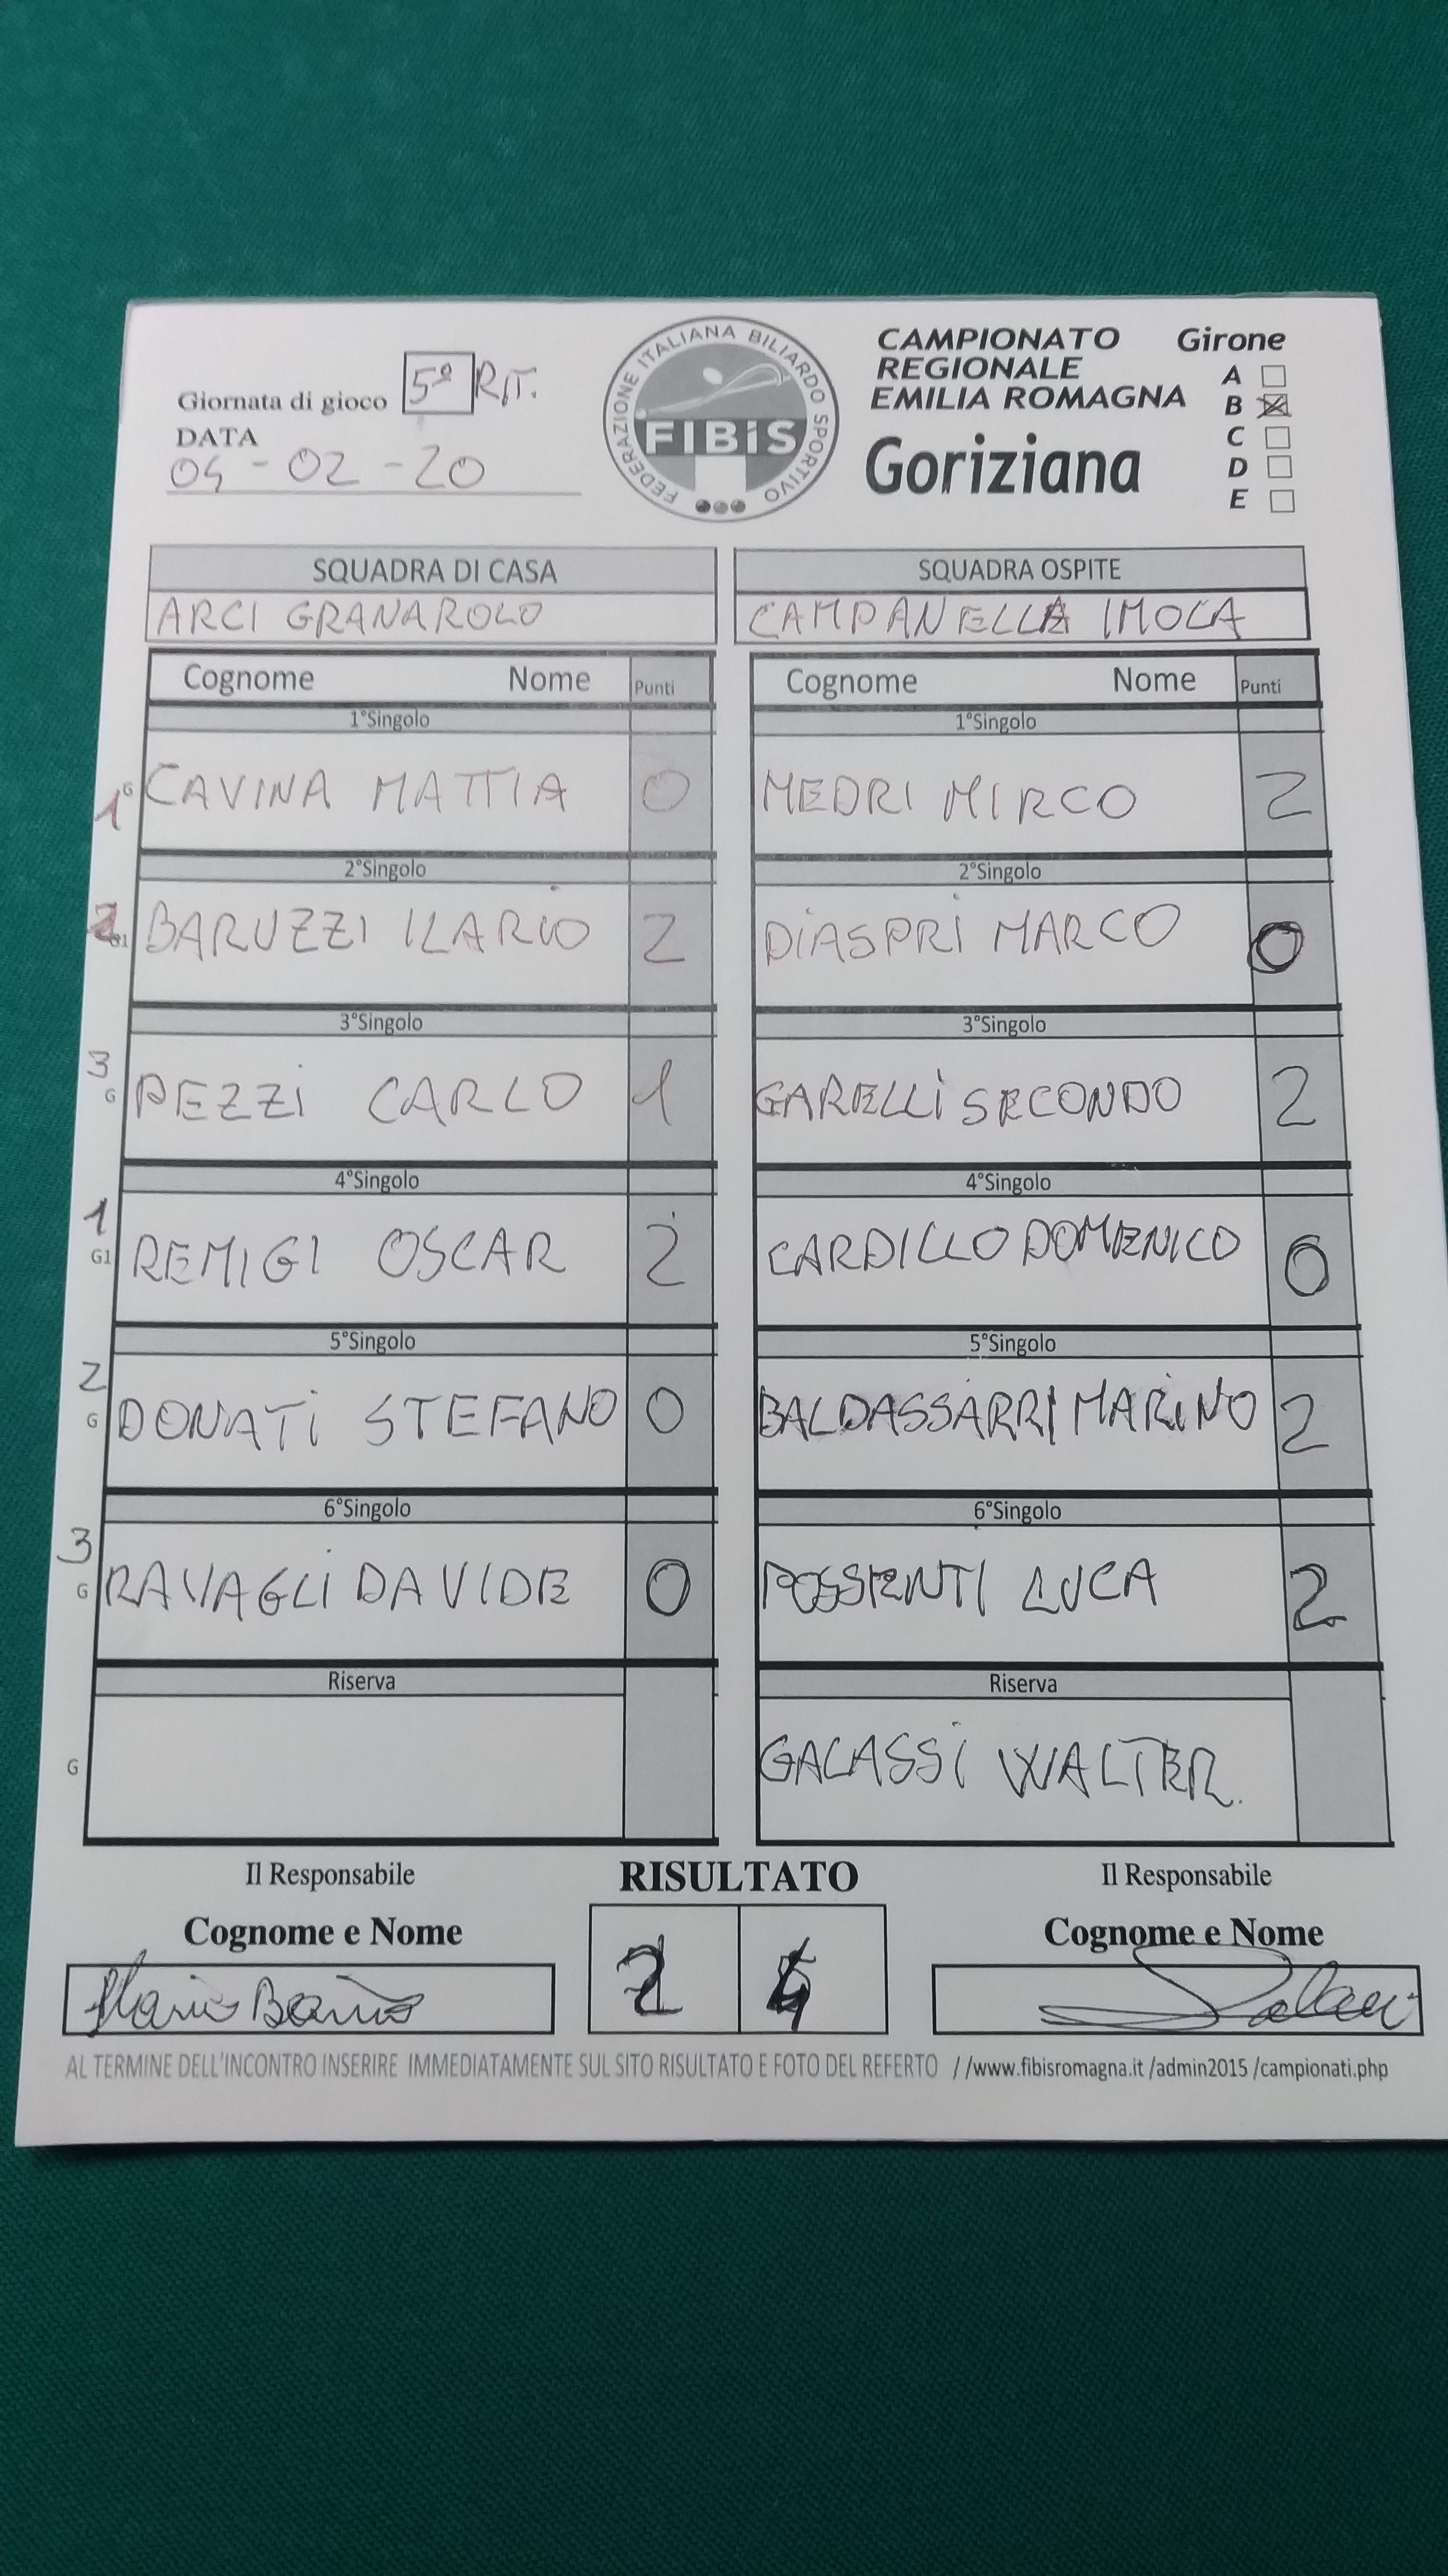 Giornata di gioco 5º RIT.
DATA
04-02-20
FEDERAZIONE ITALIANA BILIARDO SPORTIVO
FIBiS
CAMPIONATO
REGIONALE
EMILIA ROMAGNA
Goriziana
Girone
A
B
C
D
E
SQUADRA DI CASA
ARCI GRANAROLO
SQUADRA OSPITE
CAMPANELLA IMOLA
Cognome Nome Punti
Cognome Nome Punti
1°Singolo
1°Singolo
1 G CAVINA MATTIA 0
MEDRI MIRCO 2
2°Singolo
2°Singolo
2 G1 BARUZZI ILARIO 2
DIASPRI MARCO 0
3°Singolo
3°Singolo
3 G PEZZI CARLO 1
GARELLI SECONDO 2
4°Singolo
4°Singolo
1 G1 REMIGI OSCAR 2
CARDILLO DOMENICO 0
5°Singolo
5°Singolo
2 G DONATI STEFANO 0
BALDASSARRI MARINO 2
6°Singolo
6°Singolo
3 G RAVAGLI DAVIDE 0
POSSENTI LUCA 2
Riserva
Riserva
G
GALASSI WALTER.
Il Responsabile
Cognome e Nome
RISULTATO
2 4
Il Responsabile
Cognome e Nome
AL TERMINE DELL'INCONTRO INSERIRE IMMEDIATAMENTE SUL SITO RISULTATO E FOTO DEL REFERTO //www.fibisromagna.it /admin2015 /campionati.php